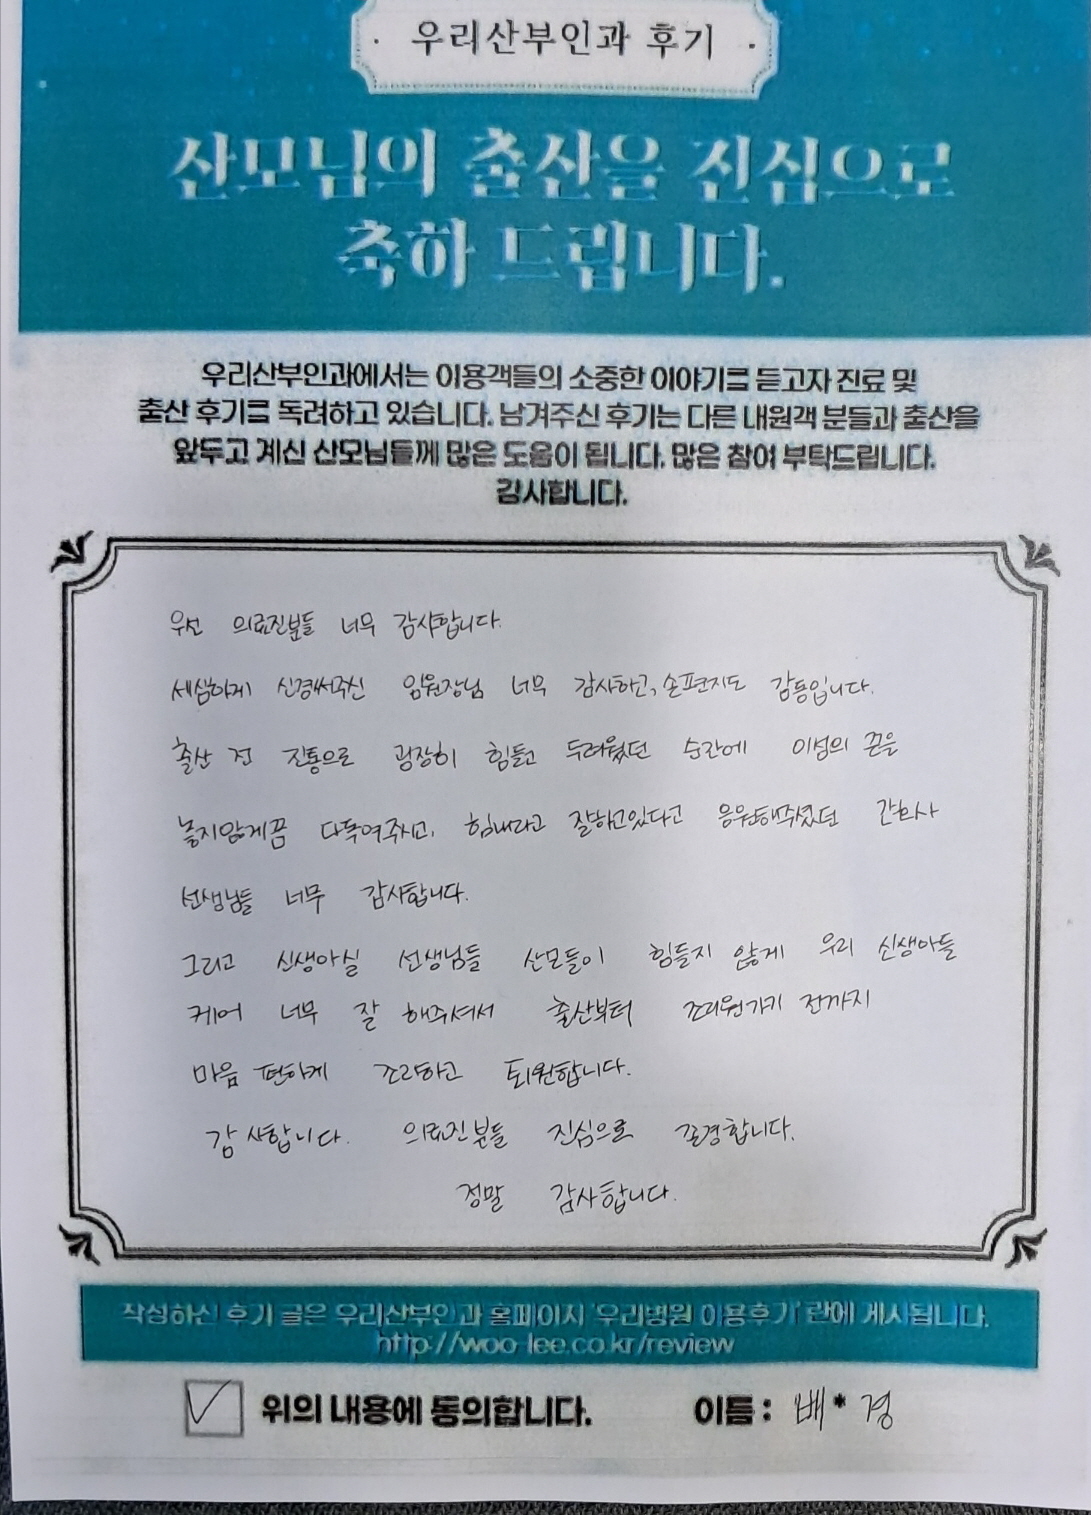 · 우리산부인과 후기 ·
산모님의 출산을 진심으로
축하 드립니다.
우리산부인과에서는 이용객들의 소중한 이야기를 듣고자 진료 및
출산 후기를 독려하고 있습니다. 남겨주신 후기는 다른 내원객 분들과 출산을
앞두고 계신 산모님들께 많은 도움이 됩니다. 많은 참여 부탁드립니다.
감사합니다.
우선 의료진분들 너무 감사합니다.
세심하게 신경써주신 임원장님 너무 감사하고, 손편지도 감동입니다.
출산 전 진통으로 굉장히 힘들고 두려웠던 순간에 이성의 끈을
놓지않게끔 다독여주시고, 힘내라고 잘하고있다고 응원해주셨던 간호사
선생님들 너무 감사합니다.
그리고 신생아실 선생님들 산모들이 힘들지 않게 우리 신생아들
케어 너무 잘 해주셔서 출산부터 조리원가기 전까지
마음 편하게 조리하고 퇴원합니다.
감사합니다. 의료진분들 진심으로 존경합니다.
정말 감사합니다.
작성하신 후기 글은 우리산부인과 홈페이지 '우리병원 이용후기' 란에 게시됩니다.
http://woo-lee.co.kr/review
위의 내용에 동의합니다. 이름 : 배*경